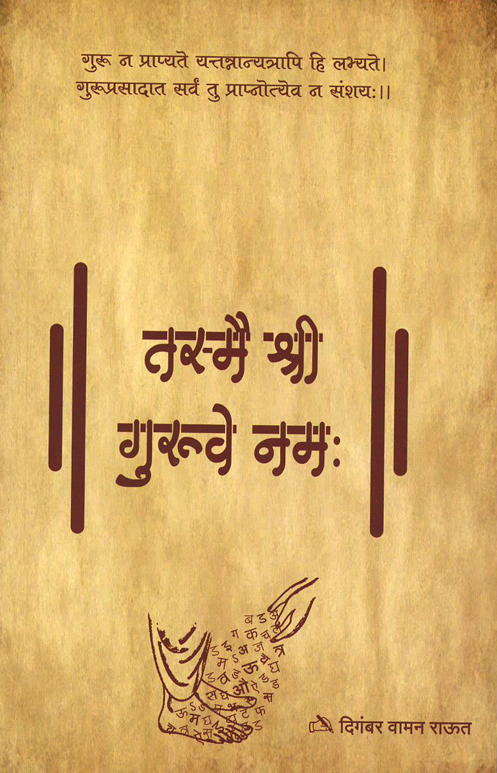 गुरू न प्राप्यते यत्तन्नान्यत्रापि हि लभ्यते।
गुरूप्रसादात सर्वं तु प्राप्नोत्येव न संशयः।।
तस्मै श्री
गुरूवे नमः
दिगंबर वामन राऊत